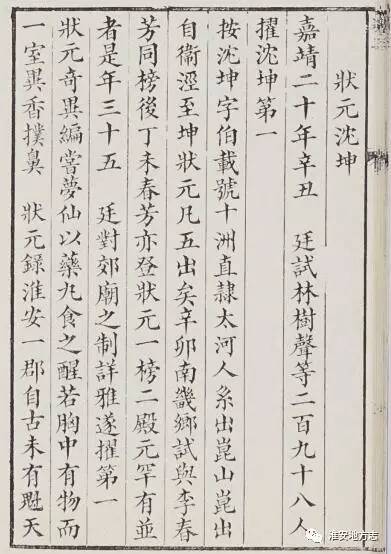 狀元沈坤
嘉靖二十年辛丑　廷試林樹聲等二百九十八人
擢沈坤第一
按沈坤字伯載號十洲直隸太河人系出崑山崑出
自衞涇至坤狀元凡五出矣辛卯南畿鄉試與李春
芳同榜後丁未春芳亦登狀元一榜二殿元罕有並
者是年三十五　廷對郊廟之制詳雅遂擢第一
狀元奇異編嘗夢仙以藥丸食之醒若胸中有物而
一室異香撲鼻　狀元錄淮安一郡自古未有魁天
淮安地方志